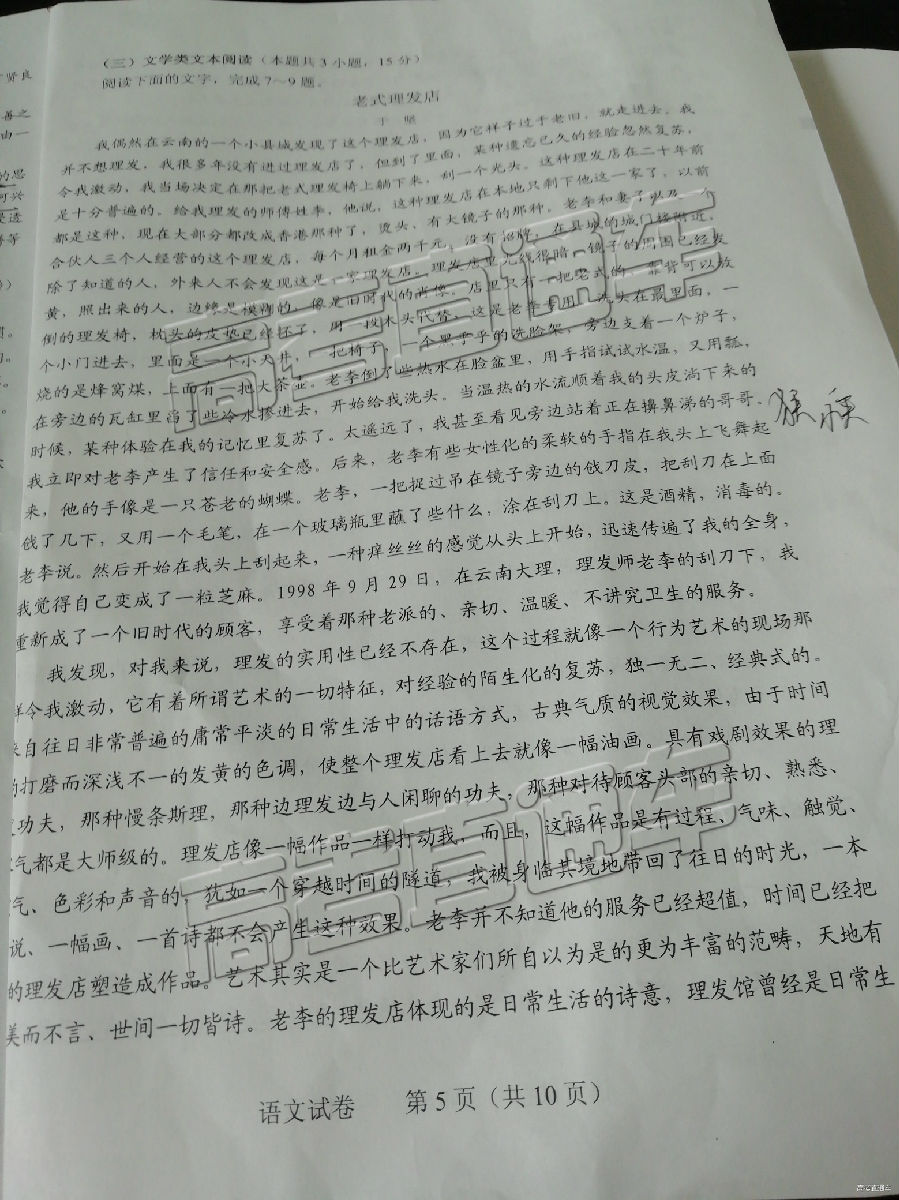 （三）文学类文本阅读（本题共3小题，15分）
阅读下面的文字，完成7～9题。
老式理发店
于坚
我偶然在云南的一个小县城发现了这个理发店，因为它样子过于老旧，就走进去。我
并不想理发，我很多年没有进过理发店了，但到了里面，某种遗忘已久的经验忽然复苏，
令我激动，我当场决定在那把老式理发椅上躺下来，刮一个光头。这种理发店在二十年前
是十分普遍的。给我理发的师傅姓李，他说，这种理发店在本地只剩下他这一家了，以前
都是这种，现在大部分都改成香港那种了，烫头、有大镜子的那种。老李和妻子以及一个
合伙人三个人经营的这个理发店，每个月租金两千元，没有招牌，在县城的城门楼附近，
除了知道的人，外来人不会发现这是一家理发店。理发店里光线很暗，镜子的周围已经发
黄，照出来的人，边缘是模糊的，像是旧时代的肖像。店里只有一把老式的、靠背可以放
倒的理发椅，枕头的皮垫已经坏了，用一段木头代替，这是老李专用。洗头在最里面，一
个小门进去，里面是一个小天井，一把椅子，一个黑乎乎的洗脸架，旁边支着一个炉子，
烧的是蜂窝煤，上面有一把大茶壶。老李倒了些热水在脸盆里，用手指试试水温，又用瓢，
在旁边的瓦缸里舀了些冷水掺进去，开始给我洗头。当温热的水流顺着我的头皮淌下来的
时候，某种体验在我的记忆里复苏了。太遥远了，我甚至看见旁边站着正在擤鼻涕的哥哥。
我立即对老李产生了信任和安全感。后来，老李有些女性化的柔软的手指在我头上飞舞起
来，他的手像是一只苍老的蝴蝶。老李，一把捉过吊在镜子旁边的戗刀皮，把刮刀在上面
戗了几下，又用一个毛笔，在一个玻璃瓶里蘸了些什么，涂在刮刀上。这是酒精，消毒的。
老李说。然后开始在我头上刮起来，一种痒丝丝的感觉从头上开始，迅速传遍了我的全身，
我觉得自己变成了一粒芝麻。1998年9月29日，在云南大理，理发师老李的刮刀下，我
重新成了一个旧时代的顾客，享受着那种老派的、亲切、温暖、不讲究卫生的服务。
我发现，对我来说，理发的实用性已经不存在，这个过程就像一个行为艺术的现场那
样令我激动，它有着所谓艺术的一切特征，对经验的陌生化的复苏，独一无二、经典式的。
来自往日非常普遍的庸常平淡的日常生活中的话语方式，古典气质的视觉效果，由于时间
的打磨而深浅不一的发黄的色调，使整个理发店看上去就像一幅油画。具有戏剧效果的理
功夫，那种慢条斯理，那种边理发边与人闲聊的功夫，那种对待顾客头部的亲切、熟悉、
气都是大师级的。理发店像一幅作品一样打动我，而且，这幅作品是有过程、气味、触觉、
气、色彩和声音的，犹如一个穿越时间的隧道，我被身临其境地带回了往日的时光，一本
说、一幅画、一首诗都不会产生这种效果。老李并不知道他的服务已经超值，时间已经把
的理发店塑造成作品。艺术其实是一个比艺术家们所自以为是的更为丰富的范畴，天地有
美而不言、世间一切皆诗。老李的理发店体现的是日常生活的诗意，理发馆曾经是日常生
语文试卷 第5页（共10页）
高考直通车
高考直通车